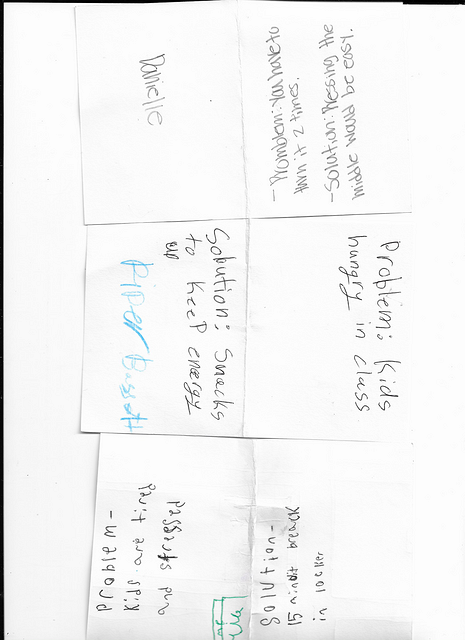 Danielle
- Promblem: You have to
turn it 2 times.
- Solution: Pressing the
middle would be easy.
Problem: Kids
hungry in class
Solution: Snacks
to KeeP energy
up
PiPer
problem-
Kids are tired
and stressed
Solution-
15 minit breack
in locker